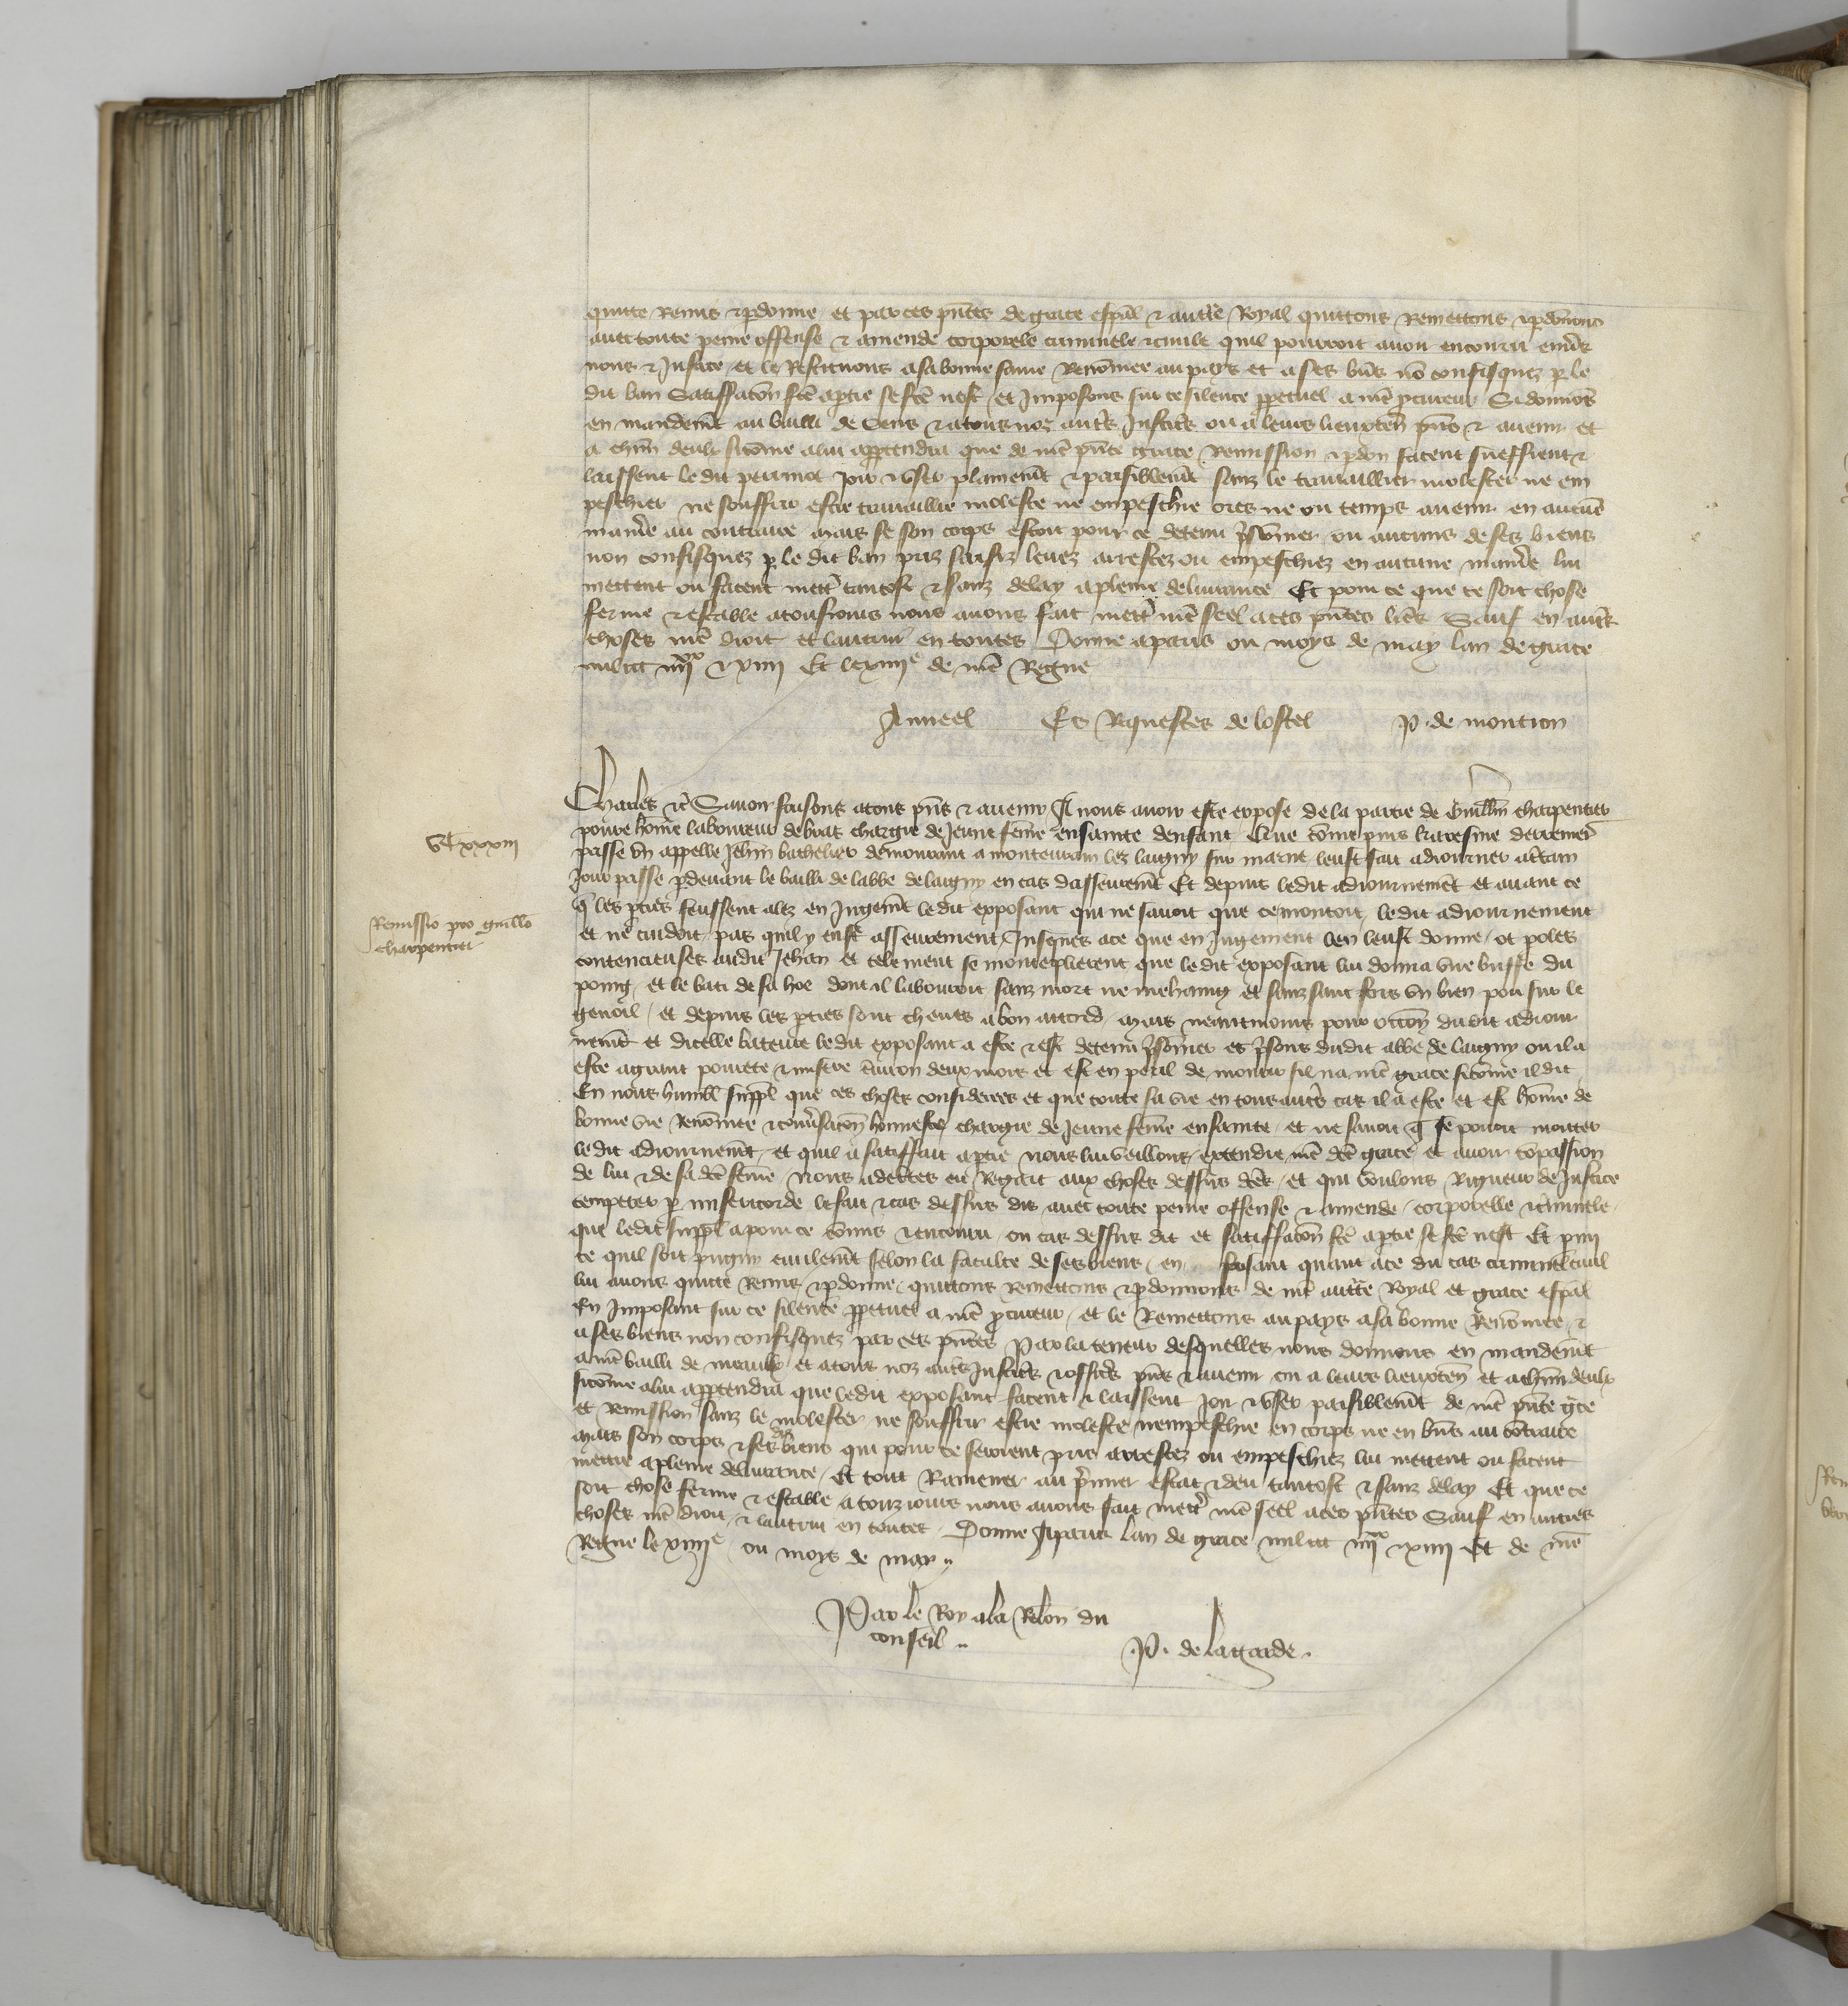 quitte remis et pdonne et par ces pñtes de grace espal et auttē Royal quittons Remettons et pdonnons
auec toute peine offense et amende corporele criminele et ciuile quil pourroit auoir encouru enuers
nous et Justice et le Restituons a sa bonne fame Renōmee au pays et a ses biēs nō confisquez p le
dit ban Satisfacōn fcē a ptie se fcē nest et Imposons sur ce silence ppetuel a nrē pcureur Si donnons
en mandemt au bailli de Sens et a tous noz autrs Justicrs ou a leurs lieuxten pñs et auenir et
a chūn deulx sicōme a lui apptendra que de nrē pñte grace Remission et pdon facent sueffrent et
laissent le dit perrinot Joir et vser plainemt et paisiblemt sanz le trauaillier molester ne em
peschier ne souffrir estre trauaillie moleste ne empeschie ores ne ou temps auenir en aucune
manrē au contraire Mais se son corps estoit pour ce detenu prisonnier ou aucuns de ses biens
non confisquez p le dit ban priz saisiz leuez arrestez ou empeschiez en aucune manrē lui
mettent ou facent mettr tantost et sanz delay a pleine deliurance Et pour ce que ce soit chose
ferme et estable a tousiours nous auons fait mettr nrē seel a ces pñtes lrēs Sauf en autrs
choses nrē droit et lautrui en toutes Donne a paris ou moys de may lan de grace
mil ccc iiiixx et xiiii Et le xiiiie de nrē Regne
Anneel Es Requestes de lostel P. de montion
Charles etc Sauoir faisons a tous pñs et auenir A nous auoir este expose de la partie de Guillm charpentier
poure hōme laboureur de bras chargie de Jeune fēme ensainte denfant Que cōme puis karesme derrenier
vcxxxiii
passe vn appelle Jehan bachelier demourant a monteurain lez laigny sur marne leust fait adiourner a certain
Jour passe pdeuant le bailli de labbe de laigny en cas dasseuremt Et depuis ledit adiournement et auant ce
q les pties feussent alez en Jugemt ledit exposant qui ne sauoit que ce montoit ledit adiournement
Remissio pro guillo
charpentier
et ne cuidoit pas quil y eust asseurement Jusques a ce que en Jugement len leust donne ot poles
contencieuses audit Jehan et telement se monteplierent que ledit exposant lui donna vne buffe du
poing et le bati de sa hoe dont il labouroit sanz mort ne mehaing et sanz sanc fors vn bien pou sur le
genoil et depuis les pties sont cheues a bon accord Mais neantmoins pour occon dudit adiour
nemt et dicelle bateure ledit exposant a este et est detenu prisonnier es prisons dudit abbe de laigny ou il a
este a grant pourete et misere enuiron deux mois et est en peril de mourir sil na nrē grace sicōme il dit
En nous humblt suppl que ces choses considerees et que toute sa vie en tous autrs cas il a este et est hōme de
bonne vie Renōmee et conuersacōn honneste chargie de Jeune fēme ensainte et ne sauoit q se pouoit monter
ledit adiournemt et quil a satisfait a ptie nous lui veillons extendre nrē dcē grace et auoir cōpassion
de lui et de sa dcē fēme Nous adecertes eu Regart aux choses dessus dcēs et qui voulons Rigueur de Justice
temperer p misericorde le fait et cas dessus dis auec toute peine offense et amende corporelle et criminele
que ledit suppl a pour ce cōmis et encouru ou cas dessus dit et satisfacōn fcē a ptie se fcē nest Et pmi
ce quil soit pugny ciuilemt selon la faculte de ses biens en posant quant a ce du cas criminel ciuil
lui auons quitte Remis et pdonne quittons Remettons et pdonnons de nrē auttē Royal et grace espal
En Imposant sur ce silence ppetuel a nrē pcureur et le Remettons au pays a sa bonne Renōmee et
a ses biens non confisquez par ces pñtes Par la teneur desquelles nous donnons en mandemt
a nrē bailli de meaulx et a tous noz autrs Justicrs et officrs pñs et auenir ou a leurs lieuxten et a chūn deulx
sicōme a lui apptendra que ledit exposant facent et laissent Joir et vser paisiblemt de nrē pñte gce
et Remission sanz le molester ne souffrir estre moleste nempeschie en corps ne en biēs au cōtraire
Mais son corps et ses diz biens qui pour ce seroient pris arrestez ou empeschiez lui mettent ou facent
mettre a pleine deliurance Et tout Ramener au prmier estat et deu tantost et sanz delay Et que ce
soit chose ferme et estable a touz iours nous auons fait mettr nrē seel a ces pñtes Sauf en autres
choses nrē droit et lautrui en toutes Donne A paris lan de grace mil ccc iiiixx et xiiii Et de nrē
Regne le xiiiie ou moys de may
Par le Roy a la Relon du
conseil
P. de la garde